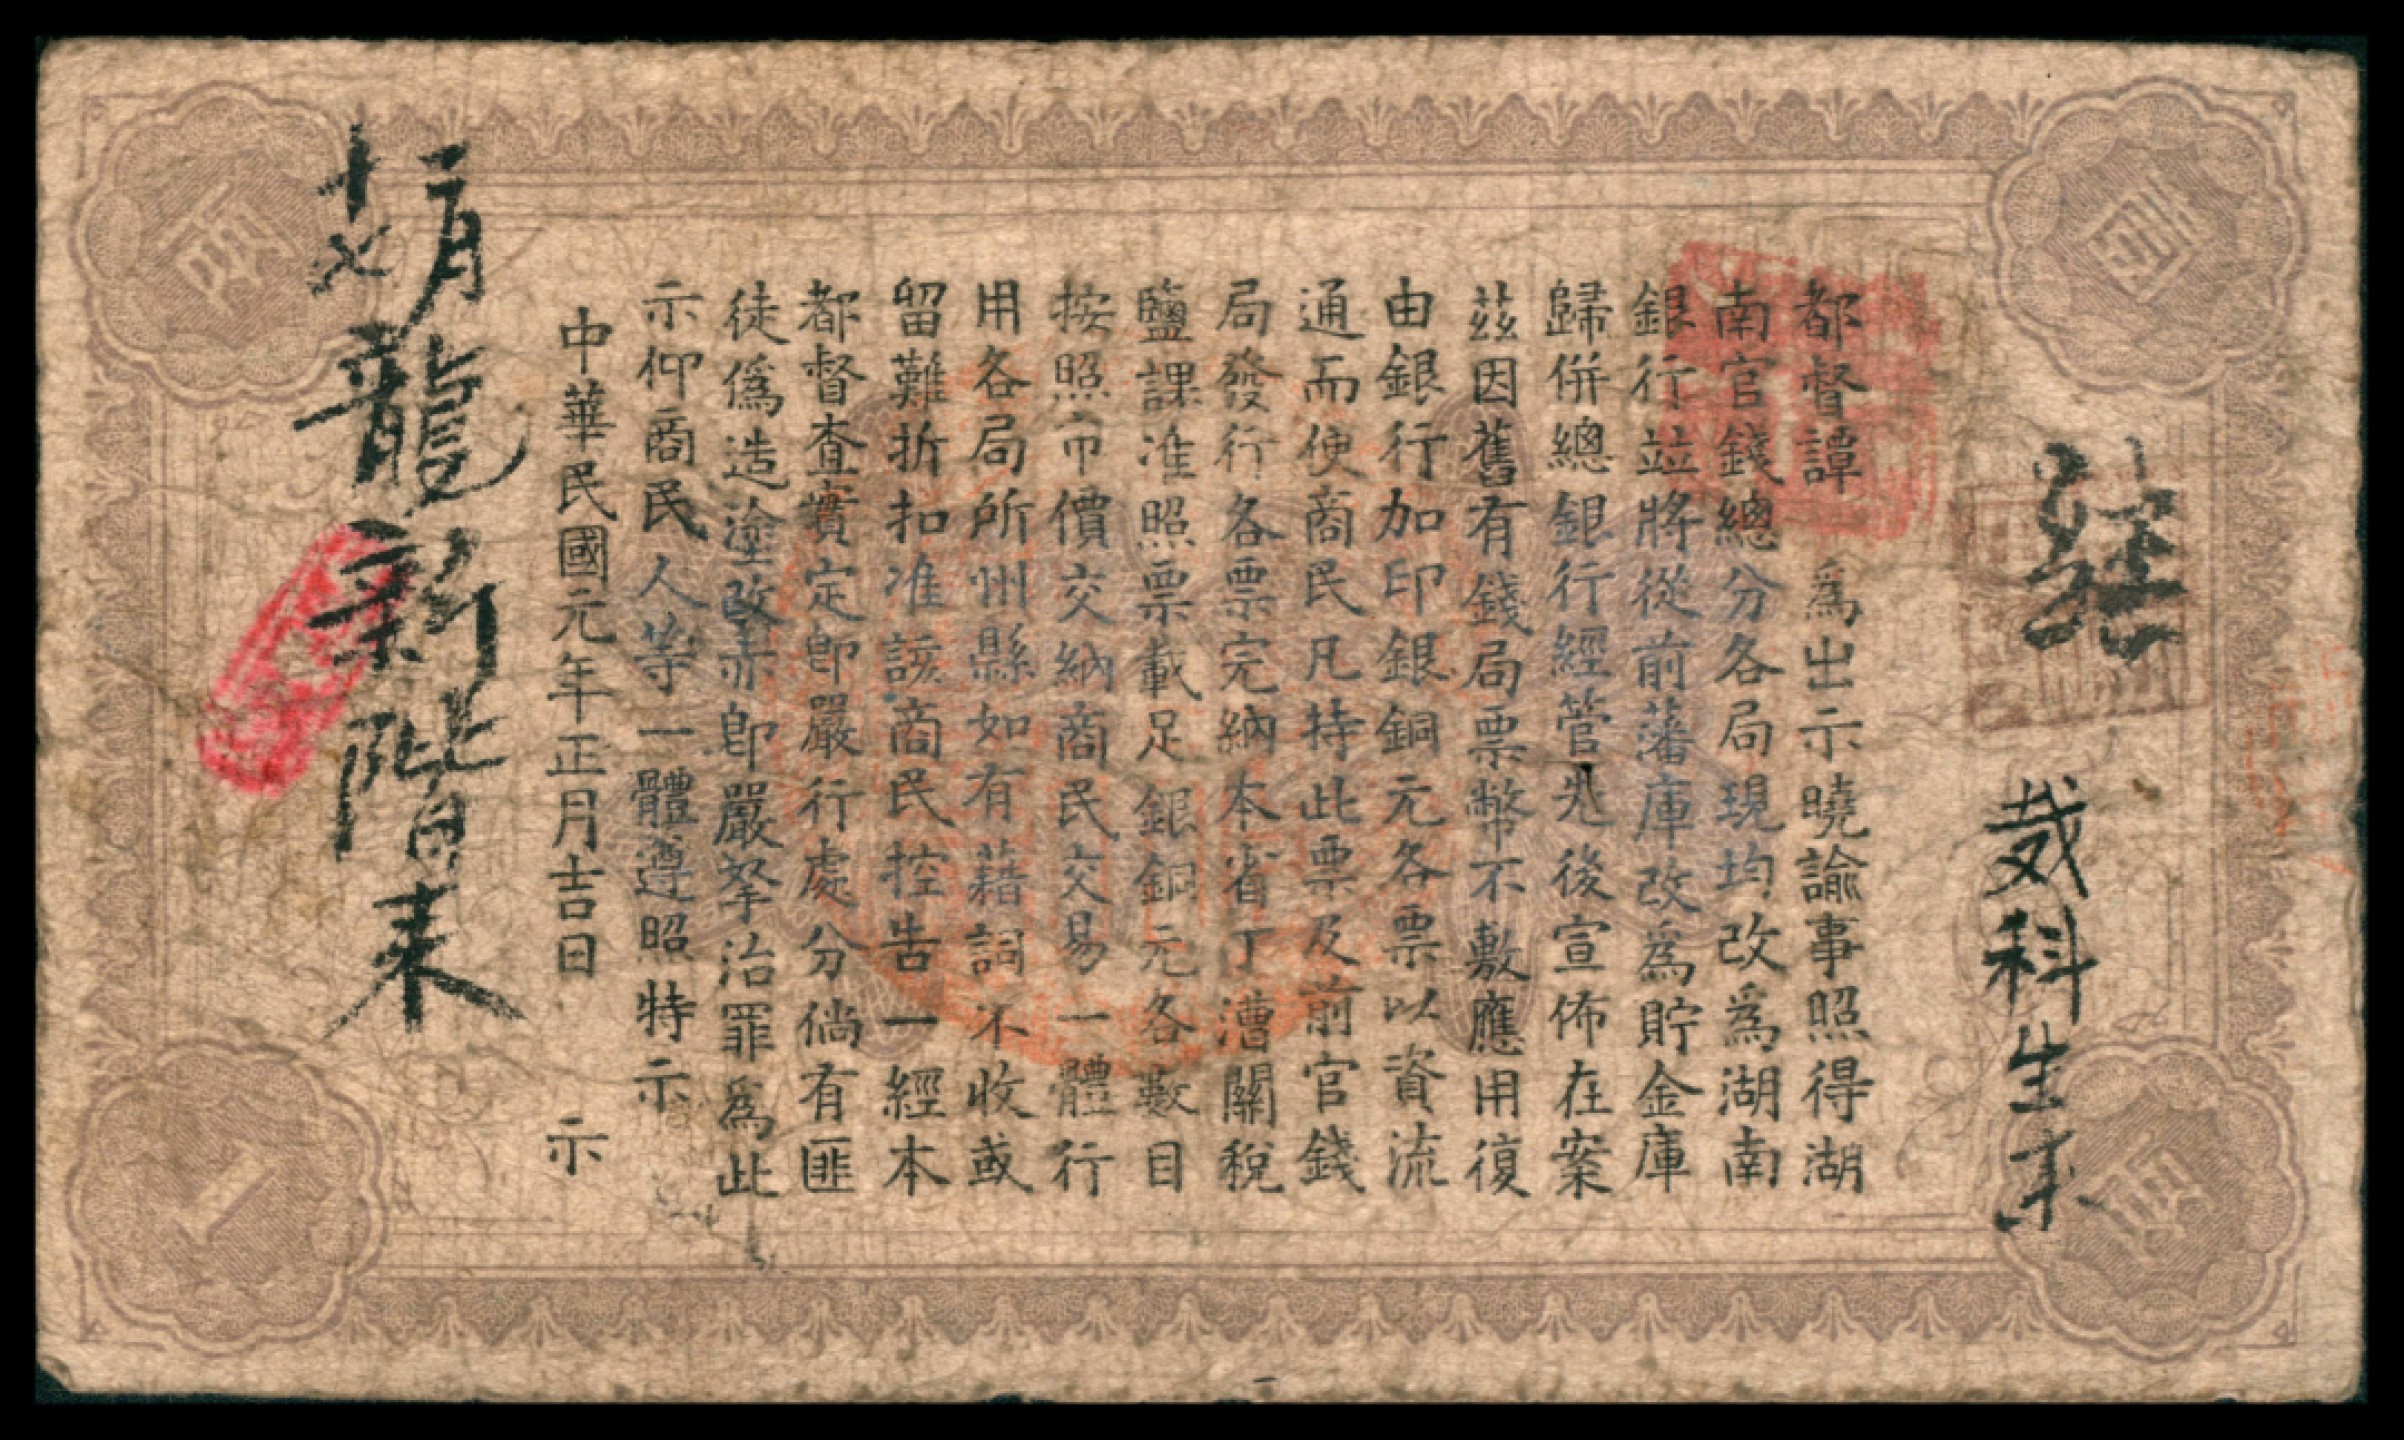 都督譚　為出示曉諭事照得湖
南官錢總分各局現均改為湖南
銀行竝將從前藩庫改為貯金庫
歸併總銀行經管先後宣佈在案
茲因舊有錢局票幣不敷應用復
由銀行加印銀銅元各票以資流
通而使商民凡持此票及前官錢
局發行各票完納本省丁漕關稅
鹽課准照票載足銀銅元各數目
按照市價交納商民交易一體行
用各局所州縣如有藉詞不收或
留難折扣准該商民控告一經本
都督查實定卽嚴行處分倘有匪
徒為造塗改亦卽嚴拏治罪為此
示仰商民人等一體遵照特示
中華民國元年正月吉日　示
科生末
十二月
十七
龍新階末
圓
兩
一
兩